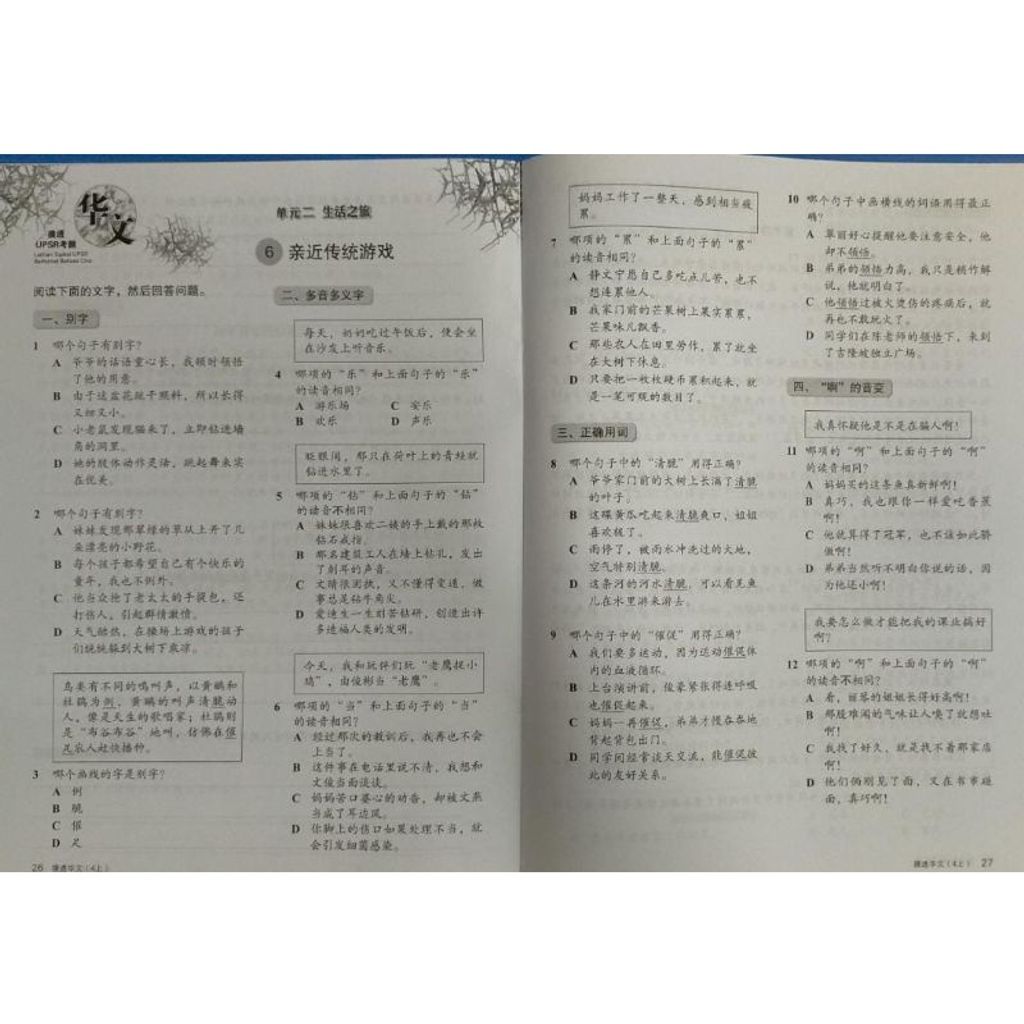 华文
摸透
UPSR考题
单元二 生活之旅
6 亲近传统游戏
阅读下面的文字，然后回答问题。
一、别字
1 哪个句子有别字？
A 爷爷的话语重心长，我顿时领悟
了他的用意。
B 由于这盆花疏于照料，所以长得
又细又小。
C 小老鼠发现猫来了，立即钻进墙
角的洞里。
D 她的肢体动作灵活，跳起舞来实
在优美。
2 哪个句子有别字？
A 妹妹发现那翠绿的草丛上开了几
朵漂亮的小野花。
B 每个孩子都希望自己有个快乐的
童年，我也不例外。
C 他当众抢了老太太的手提包，还
打伤人，引起群情激愤。
D 天气酷热，在操场上游戏的孩子
们统统躲到大树下乘凉。
鸟类有不同的鸣叫声，以黄鹂和
杜鹃为例，黄鹂的叫声清脆动
人，像是天生的歌唱家；杜鹃则
是“布谷布谷”地叫，仿佛在催
足农人赶快播种。
3 哪个画线的字是别字？
A 例
B 脆
C 催
D 足
26 摸透华文（4上）
二、多音多义字
每天，奶奶吃过午饭后，便会坐
在沙发上听音乐。
4 哪项的“乐”和上面句子的“乐”
的读音相同？
A 游乐场 C 安乐
B 欢乐 D 声乐
眨眼间，那只在荷叶上的青蛙就
钻进水里了。
5 哪项的“钻”和上面句子的“钻”
的读音不相同？
A 妹妹很喜欢二姨的手上戴的那枚
钻石戒指。
B 那名建筑工人在墙上钻孔，发出
了刺耳的声音。
C 文晴很固执，又不懂得变通，做
事总是钻牛角尖。
D 爱迪生一生刻苦钻研，创造出许
多造福人类的发明。
今天，我和玩伴们玩“老鹰捉小
鸡”，由俊彬当“老鹰”。
6 哪项的“当”和上面句子的“当”
的读音相同？
A 经过那次的教训后，我再也不会
上当了。
B 这件事在电话里说不清，我想和
文俊当面谈谈。
C 妈妈苦口婆心的劝告，却被文燕
当成了耳边风。
D 你脚上的伤口如果处理不当，就
会引发细菌感染。
妈妈工作了一整天，感到相当疲
累。
7 哪项的“累”和上面句子的“累”
的读音相同？
A 静文宁愿自己多吃点儿苦，也不
想连累他人。
B 我家门前的芒果树上果实累累，
芒果味儿飘香。
C 那些农人在田里劳作，累了就坐
在大树下休息。
D 只要把一枚枚硬币累积起来，就
是一笔可观的数目了。
三、正确用词
8 哪个句子中的“清脆”用得正确？
A 爷爷家门前的大树上长满了清脆
的叶子。
B 这碟黄瓜吃起来清脆爽口，姐姐
喜欢极了。
C 雨停了，被雨水冲洗过的大地，
空气特别清脆。
D 这条河的河水清脆，可以看见鱼
儿在水里游来游去。
9 哪个句子中的“催促”用得正确？
A 我们要多运动，因为运动催促体
内的血液循环。
B 上台演讲前，俊豪紧张得连呼吸
也催促起来。
C 妈妈一再催促，弟弟才慢吞吞地
背起背包出门。
D 同学间经常谈天交流，能催促彼
此的友好关系。
10 哪个句子中画横线的词语用得最正
确？
A 翠丽好心提醒他要注意安全，他
却不领悟。
B 弟弟的领悟力高，我只是稍作解
说，他就明白了。
C 他领悟过被火烫伤的疼痛后，就
再也不敢玩火了。
D 同学们在陈老师的领悟下，来到
了吉隆坡独立广场。
四、“啊”的音变
我真怀疑他是不是在骗人啊！
11 哪项的“啊”和上面句子的“啊”
的读音相同？
A 妈妈买的这条鱼真新鲜啊！
B 真巧，我也跟你一样爱吃香蕉
啊！
C 他就算得了冠军，也不该如此骄
傲啊！
D 弟弟当然听不明白你说的话，因
为他还小啊！
我要怎么做才能把我的课业搞好
啊？
12 哪项的“啊”和上面句子的“啊”
的读音不相同？
A 看，丽琴的姐姐长得好高啊！
B 那股难闻的气味让人嗅了就想吐
啊！
C 我找了好久，就是找不着那家店
啊！
D 他们俩刚见了面，又在书市碰
面，真巧啊！
摸透华文（4上） 27